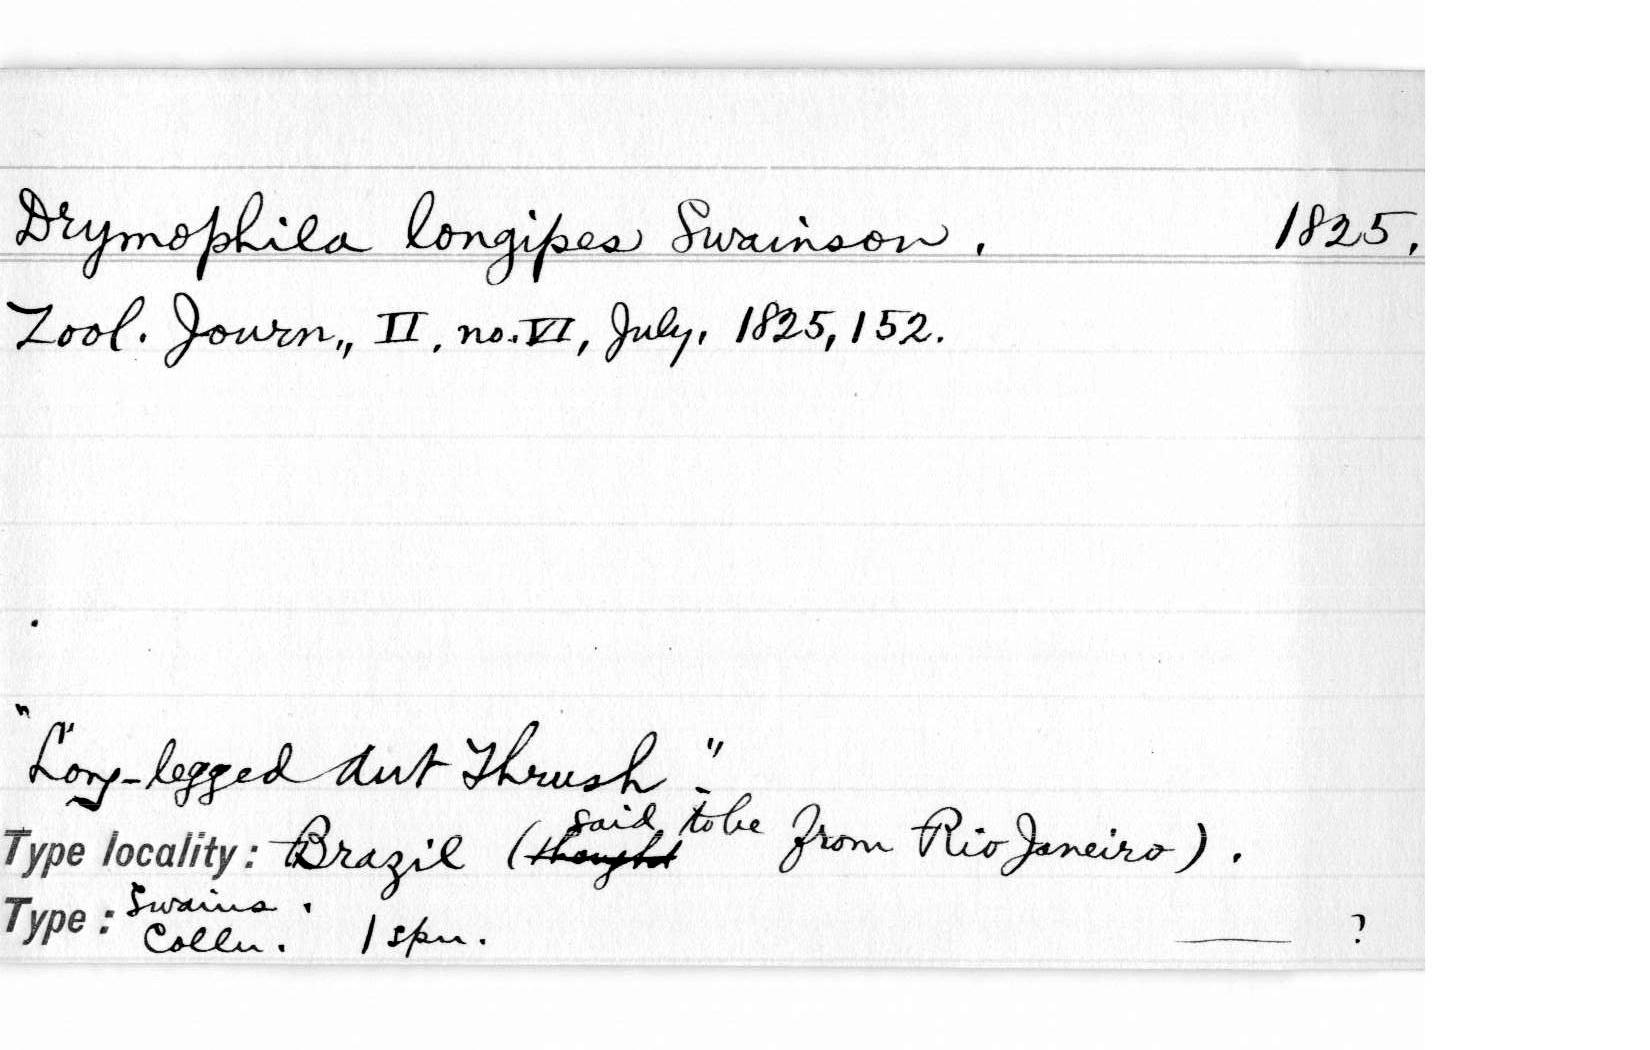 Drymophila longipes Swainson. 1825.
Zool. Journ., II, no. VI, July, 1825, 152.
"Long-legged Ant Thrush."
Type locality: Brazil (thought said to be from Rio Janeiro).
Type: Swains. Colln. 1 spn. ?